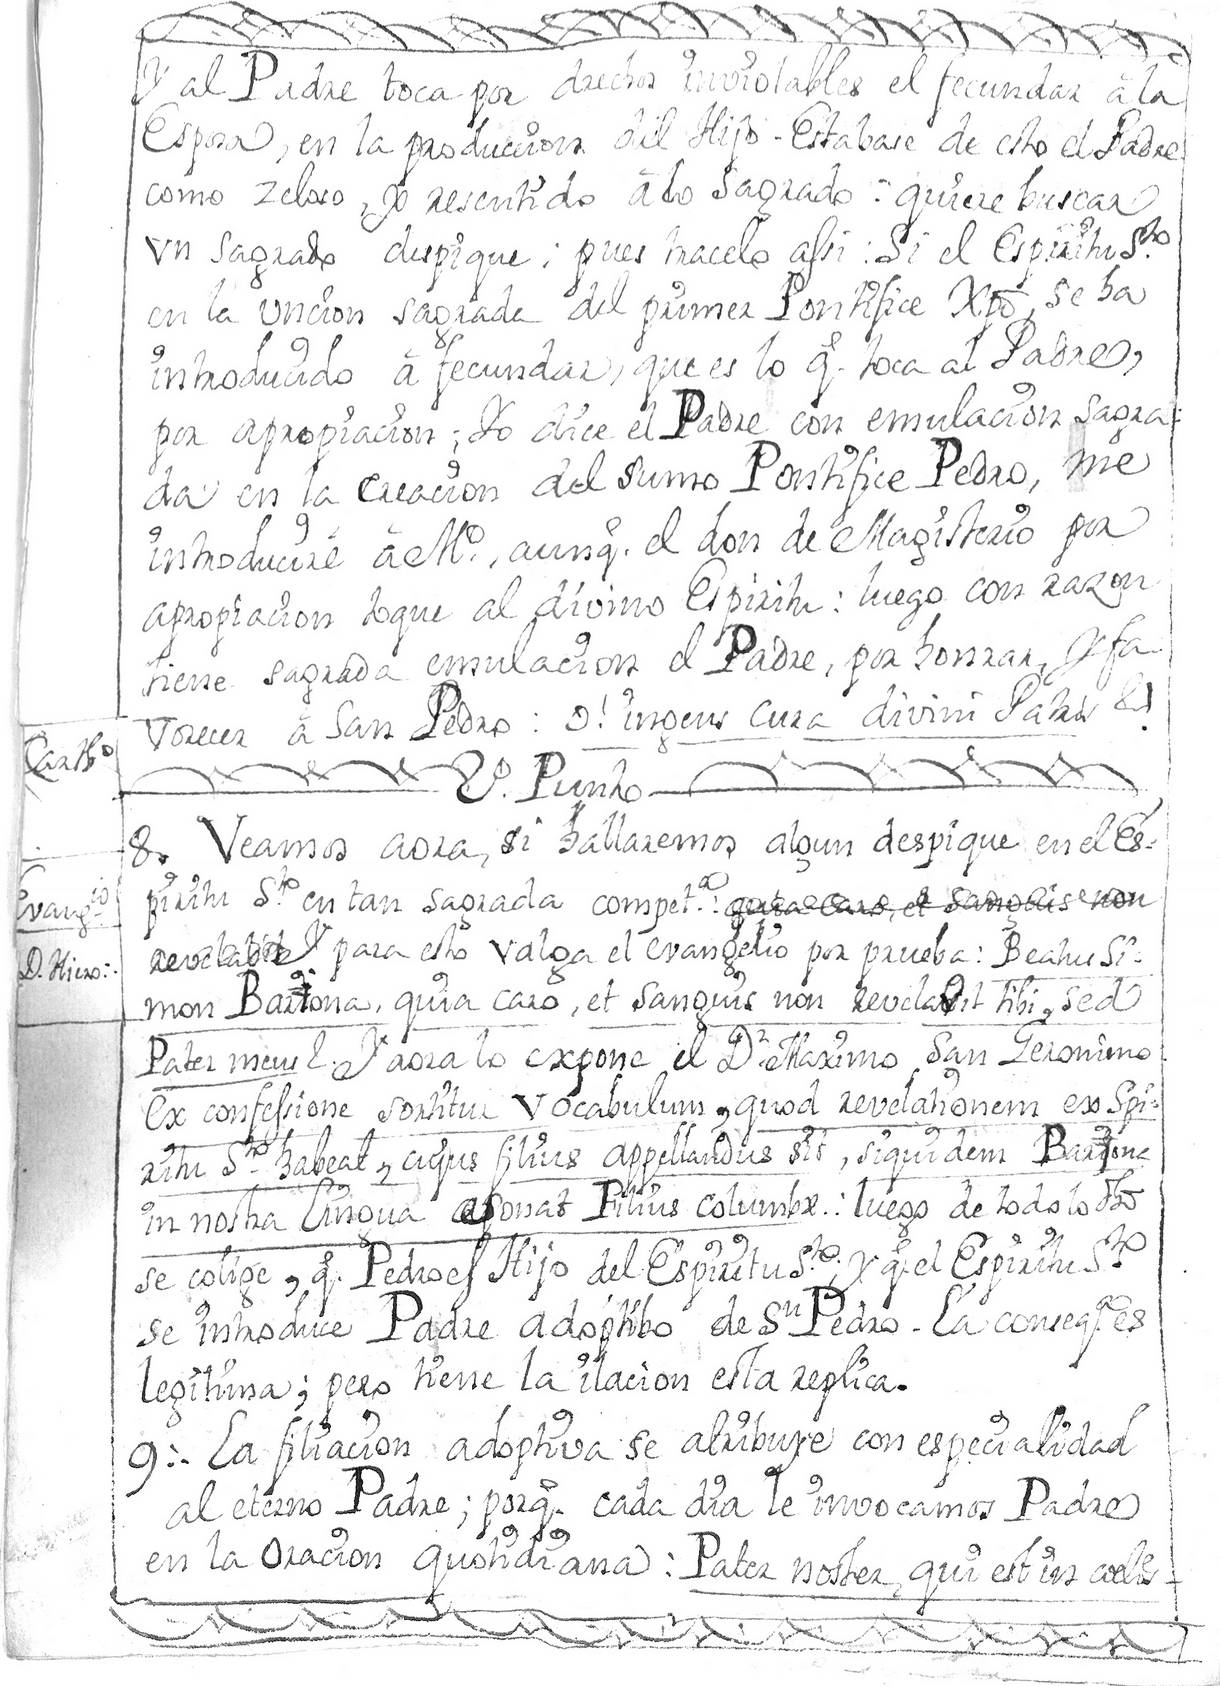 Y al Padre toca por drechos inviolables el fecundar â la
Esposa, en la produccion del Hijo - Estabase de esto el Padre
como zeloso, y resentido â lo sagrado: quiere buscar
vn sagrado despique; pues hacelo assi: Si el Espiritu S.to
en la uncion sagrada del primer Pontifice Xpo, se ha
introducido â fecundar, que es lo q. toca al Padre,
por apropiacion; Yo dice el Padre con emulacion sagra-
da en la creacion del sumo Pontifice Pedro, me
introducire â M.o, aunq. el don de Magisterio por
apropiacion toque al divino Espiritu: luego con razon
tiene sagrada emulacion el Padre, por honrar, y fa-
vorecer â San Pedro: o! ingens cura divini Patris &!
Carth.o
2.o Punto
8. Veamos aora, si hallaremos algun despique en el Es-
piritu S.to en tan sagrada compet.a: quia caro, et sanguis non
Evang.io
revelabit Y para esto valga el evangelio por prueba: Beatus Si-
D. Hiero:.
mon Bariona, quia caro, et sanguis non revelabit tibi, sed
Pater meus &. Y aora lo expone el D.r Maximo San Geronimo
Ex confessione sortitur vocabulum, quod revelationem ex Spi-
ritu S.to habeat, cujus filius appellandus sit, siquidem Bariona
in nostra lingua sonat Filius columbæ.: luego de todo lo dho
se colige, q. Pedro es Hijo del Espiritu S.to; y q. el Espiritu S.to
se introduce Padre adoptibo de Sn Pedro - La conseq.a es
legitima; pero tiene la ilacion esta replica.
9:. La filiacion adoptiva se atribuye con especialidad
al eterno Padre; porq. cada dia le invocamos Padre
en la oracion quotidiana: Pater noster, qui est in cælis-